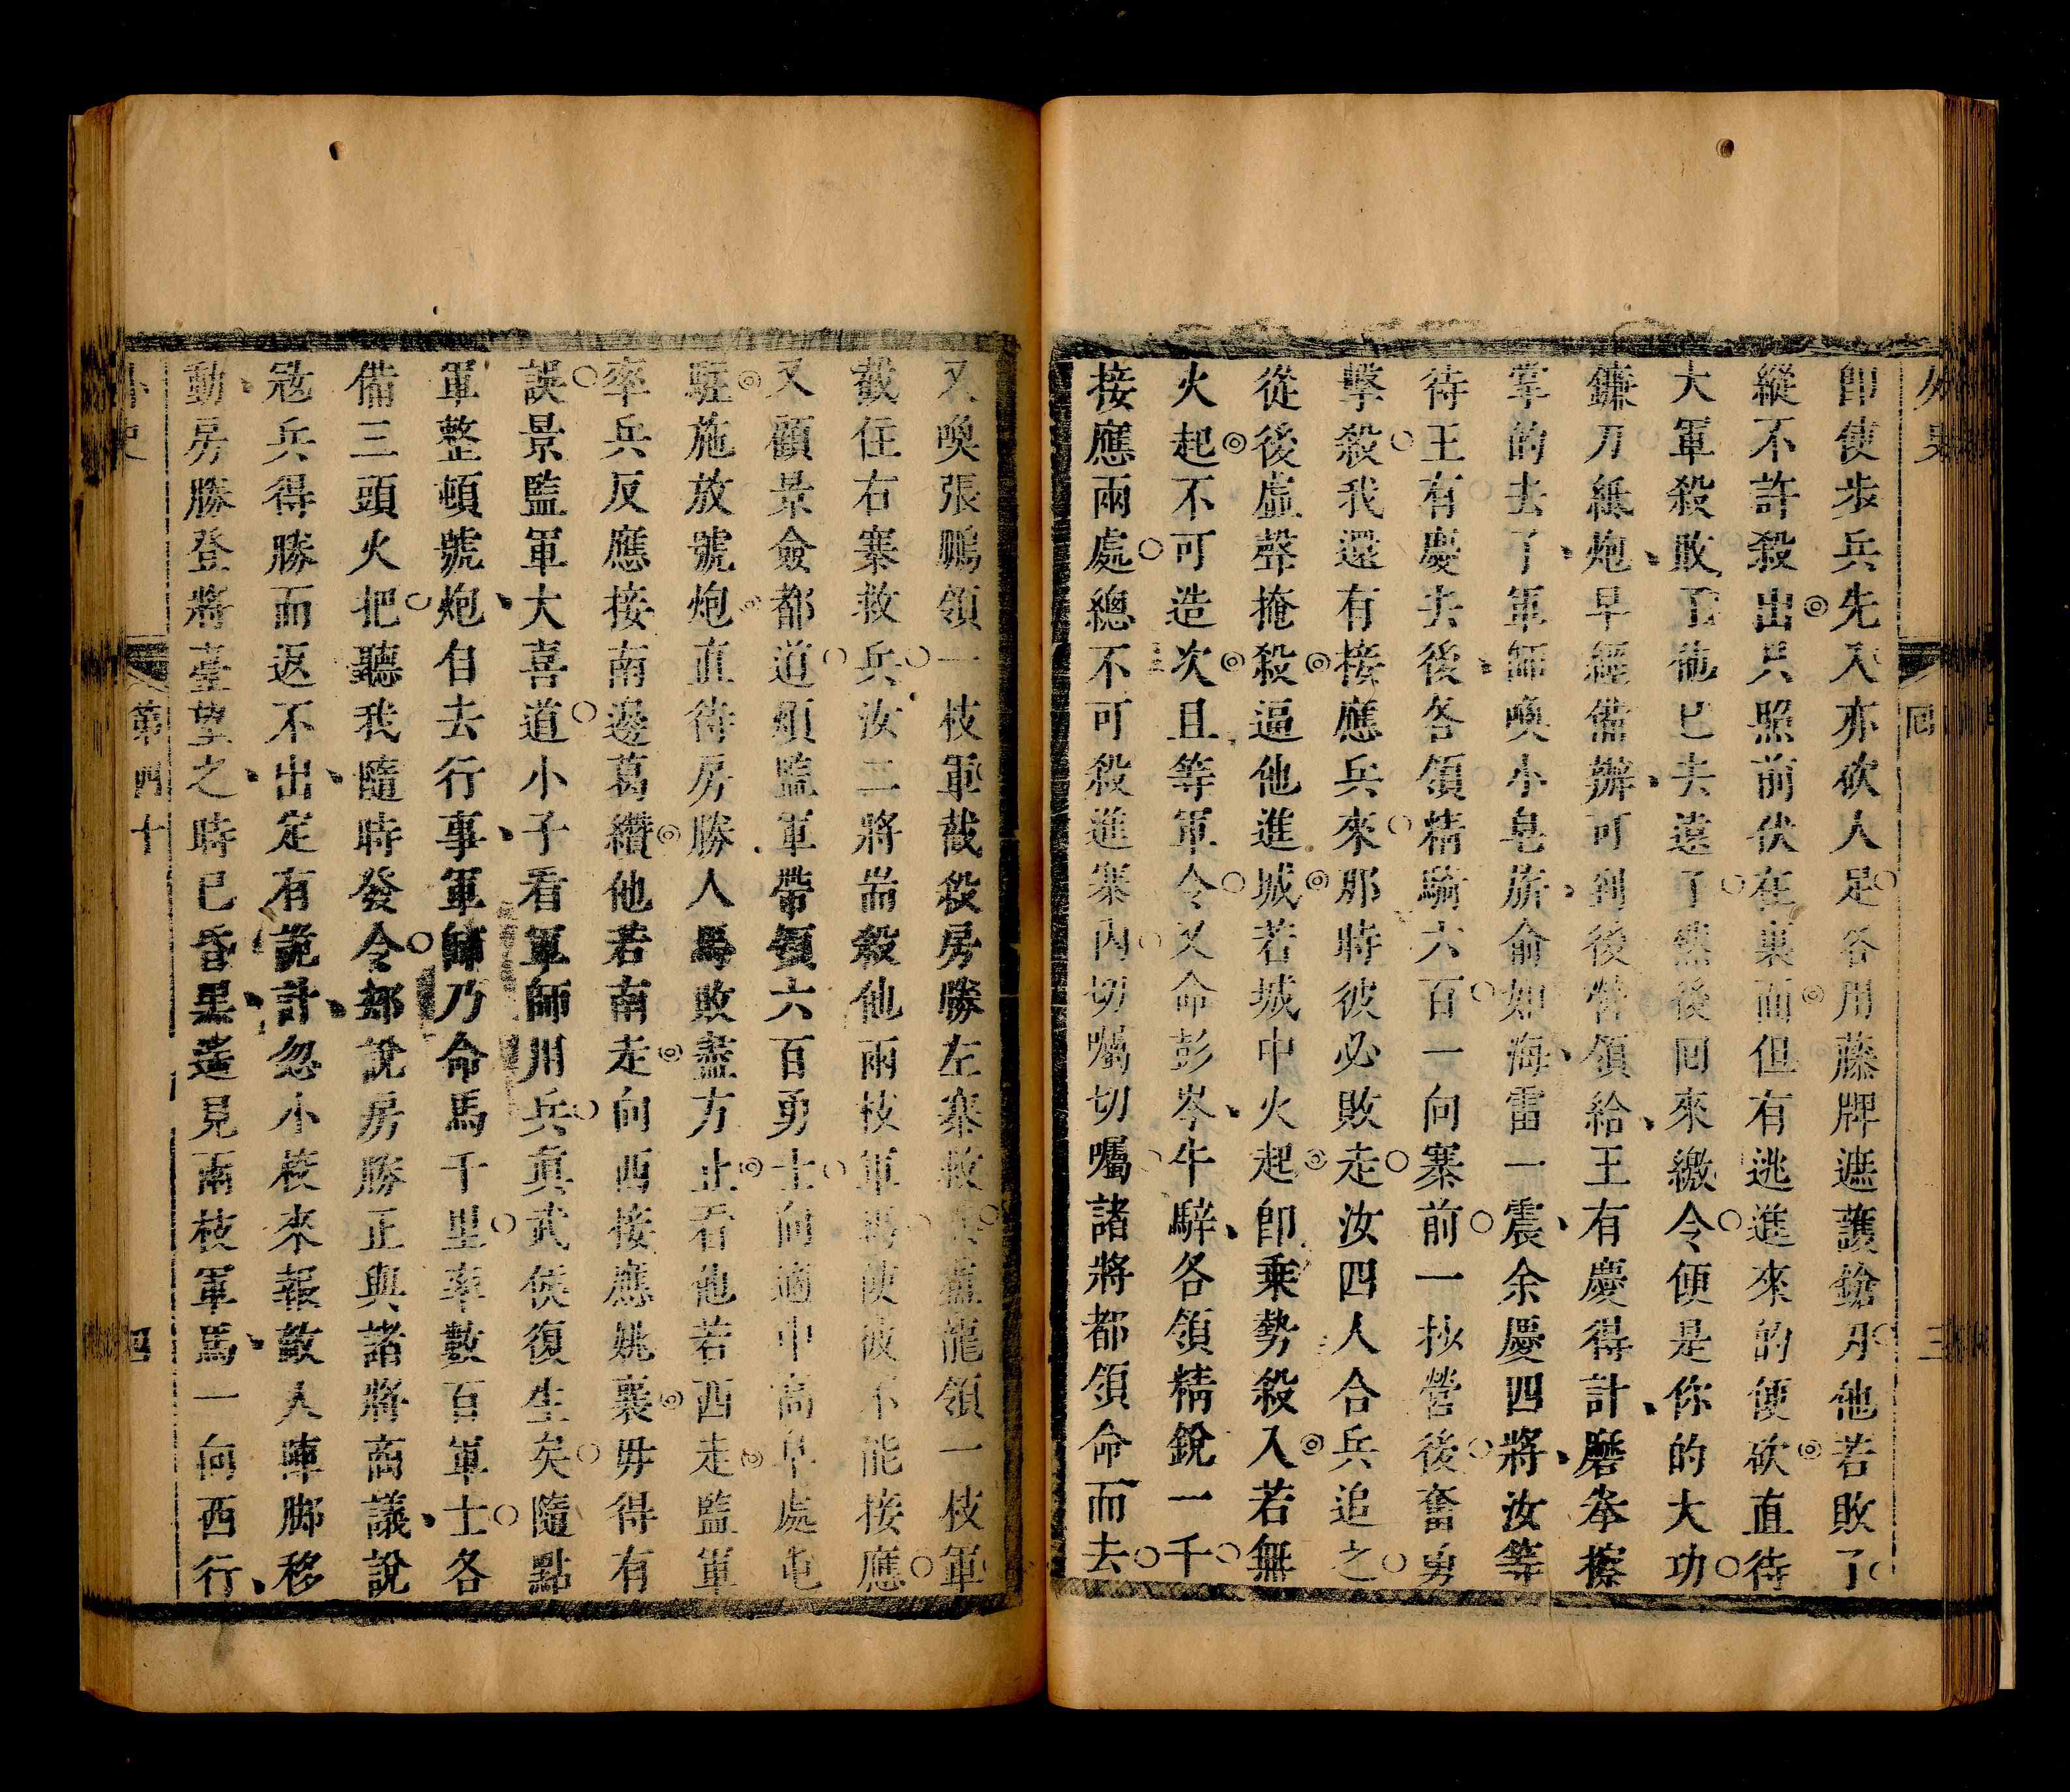 外史
回
三
卽使步兵先入亦砍人足各用藤牌遮護鎗刀他若敗了
縱不許殺出只照前伏在裏而但有逃進來的便砍直待
大軍殺敗了他已去遠了然後囘來繳令便是你的大功
鐮刀紙炮早經備辦可到後營領給王有慶得計磨拳擦
掌的去了軍師喚小皂旂俞如海雷一震余慶四將汝等
待王有慶去後各領精騎六百一向寨前一抄營後奮勇
擊殺我還有接應兵來那時彼必敗走汝四人合兵追之
從後虛聲掩殺逼他進城若城中火起卽乗勢殺入若無
火起不可造次且等軍令又命彭岑牛騂各領精銳一千
接應兩處總不可殺進寨內切囑切囑諸將都領命而去
又喚張鵬領一枝軍截殺房勝左寨救兵董龍領一枝軍
截住右寨救兵汝二將耑殺他兩枝軍馬使彼不能接應
又顧景僉都道煩監軍帶領六百勇士向適中高阜處屯
駐施放號炮直待房勝人馬敗盡方止看他若西走監軍
率兵反應接南邊葛纘他若南走向西接應姚襄毋得有
誤景監軍大喜道小子看軍師用兵真武侯復生矣隨點
軍整頓號炮自去行事軍師乃命馬千里率數百軍士各
備三頭火把聽我隨時發令却說房勝正與諸將商議說
宼兵得勝而返不出定有詭計忽小校來報敵人陣脚移
動房勝登將臺望之時已昏黑遙見兩枝軍馬一向西行
外史
第四十
四